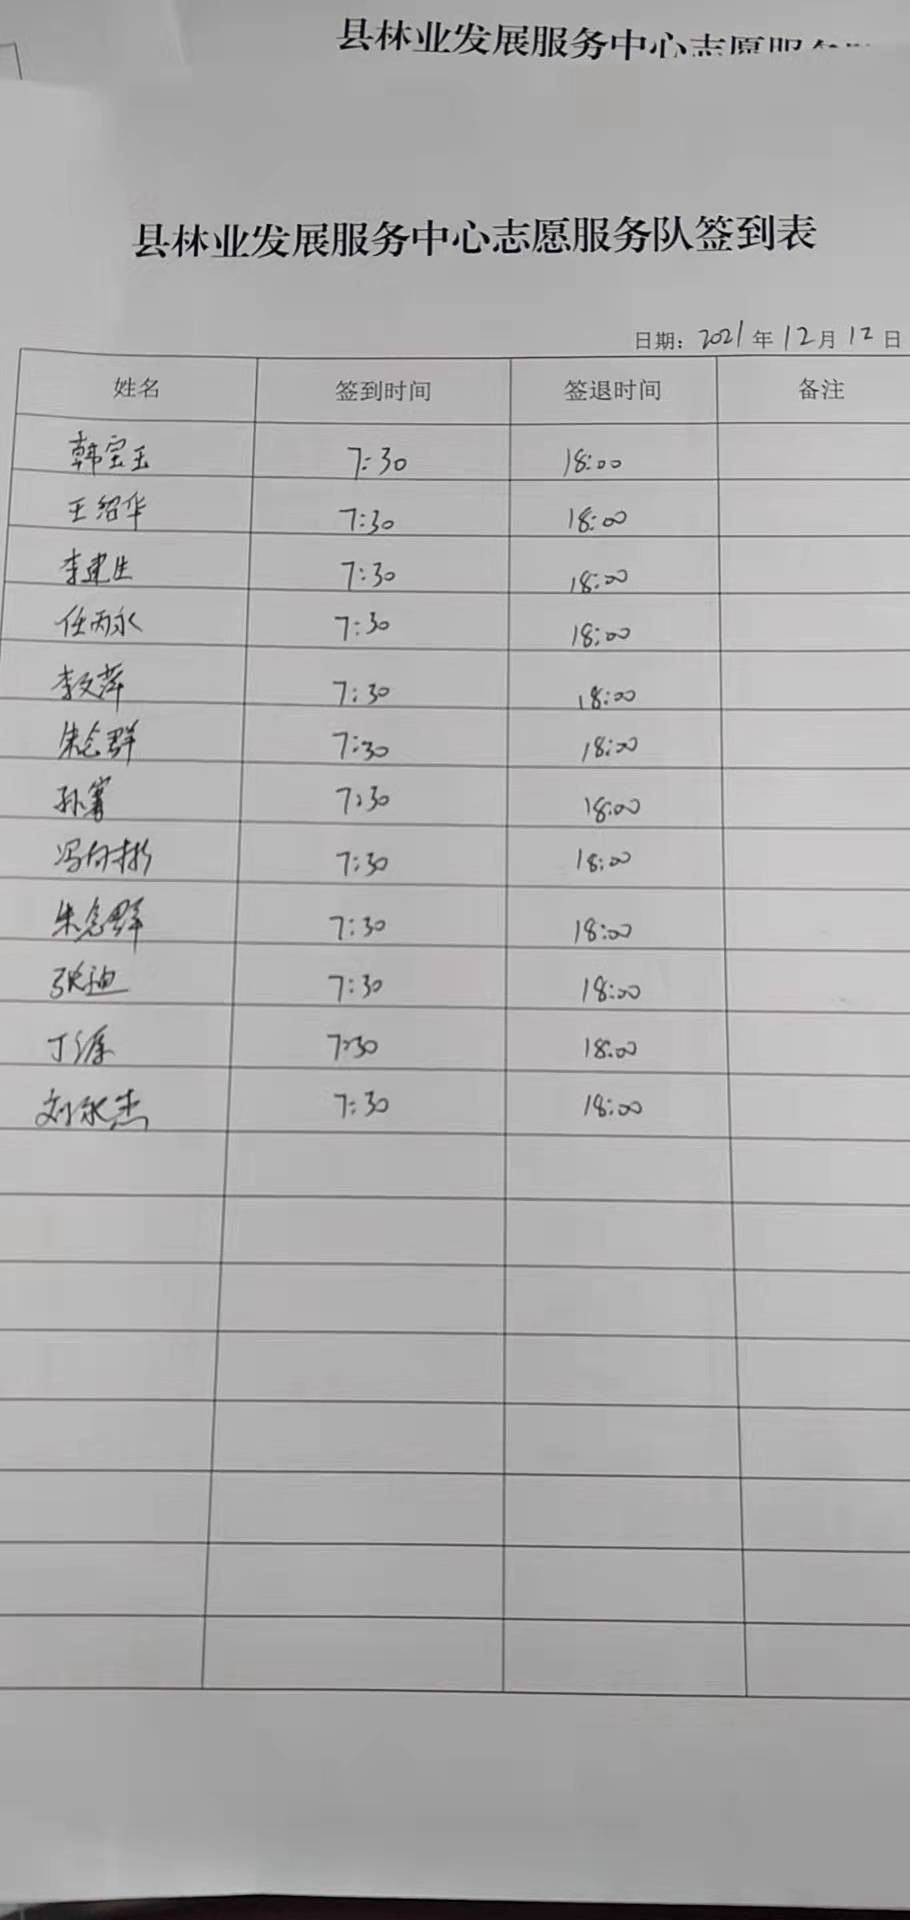 县林业发展服务中心志愿服务
县林业发展服务中心志愿服务队签到表
日期: 2021年12月12日
姓名 签到时间 签退时间 备注
韩宝玉 7:30 18:00
王绍华 7:30 18:00
李建生 7:30 18:00
任丙永 7:30 18:00
李文萍 7:30 18:00
朱念群 7:30 18:00
孙 7:30 18:00
冯 7:30 18:00
朱念群 7:30 18:00
张迪 7:30 18:00
丁 7:30 18:00
刘永杰 7:30 18:00